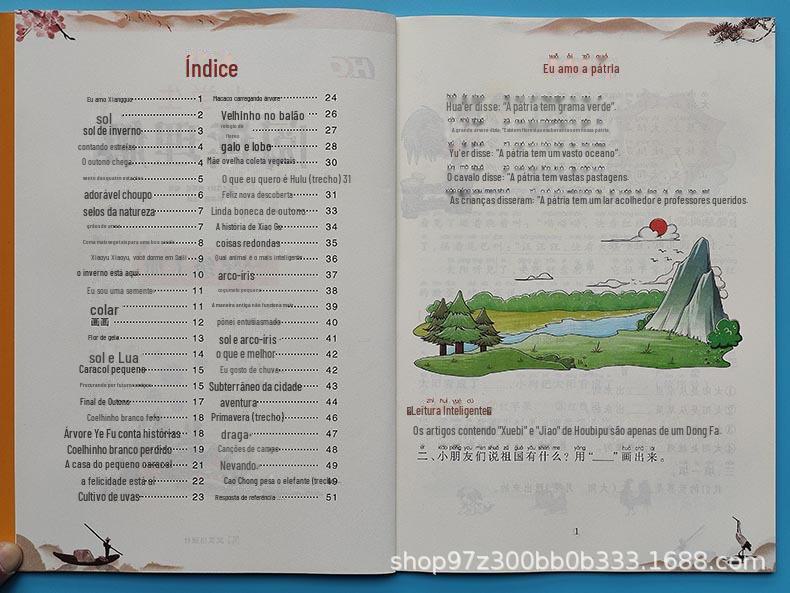 Índice
Eu amo Xiangguo 1
sol 2
sol de inverno 3
contando estrelas 4
O outono chega 4
5
adorável choupo 6
selos da natureza 7
7
8
Xiaoyu Xiaoyu, você dorme em Saili 9
o inverno está aqui 10
Eu sou uma semente 11
colar 11
画画 12
Flor de gelo 13
sol e Lua 14
Caracol pequeno 15
15
Final de Outono 17
Coelhinho branco feito 18
Árvore Ye Fu conta histórias 18
Coelhinho branco perdido 19
A casa do pequeno oaracol 21
a felicidade está ei 22
Cultivo de uvas 23
Macaco carregando árvore 24
Velhinho no balão 26
relógio de
flores 27
galo e lobo 28
Mãe ovelha coleta vegetais 30
O que eu quero é Hulu (trecho) 31
Feliz nova descoberta 31
Linda boneca de outono 33
A história de Xiao Ge 34
coisas redondas 35
Qual animal é o mais inteligente 36
arco-íris 37
cogumelo pequeno 38
A maneira antiga não funciona mais 39
pônei entusiasmado 40
sol e arco-íris 41
o que e melhor 42
Eu gosto de chuva 42
Subterrâneo da cidade 43
aventura 44
Primavera (trecho) 46
draga 47
Canções de campo 48
Nevando. 49
Cao Chong pesa o elefante (trecho 49
Resposta de referência 51
wǒ ài zǔ guó
Eu amo a pátria
Hua'er disse: "A pátria tem grama verde".
Yu'er disse: "A pátria tem um vasto oceano".
O cavalo disse: "A pátria tem vastas pastagens.
As crianças disseram: "A pátria tem um lar acolhedor e professores queridos.
zhì huì yuè dú
Leitura Inteligente
Os artigos contendo "Xuebi" e "Jiao" de Houbipu são apenas de um Dong Fa.
二、小朋友们说祖国有什么？用“﹏﹏”画出来。
1
shop97z300bb0b333.1688.com